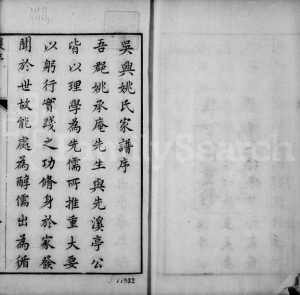 吳興姚氏家譜序
吾郡姚承庵先生與先溪亭公
皆以理學為先儒所推重大要
以躬行實踐之功脩身於家發
聞於世故能處為醇儒出為循